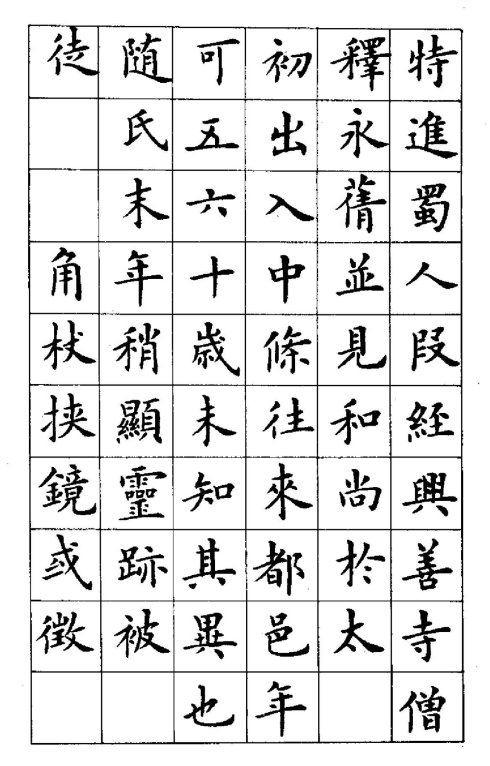 特進蜀人段經興善寺僧
釋永蒨並見和尚於太
初出入中條往來都邑年
可五六十歲未知其異也
随氏末年稍顯靈跡被
徒角杖挟鏡或徵